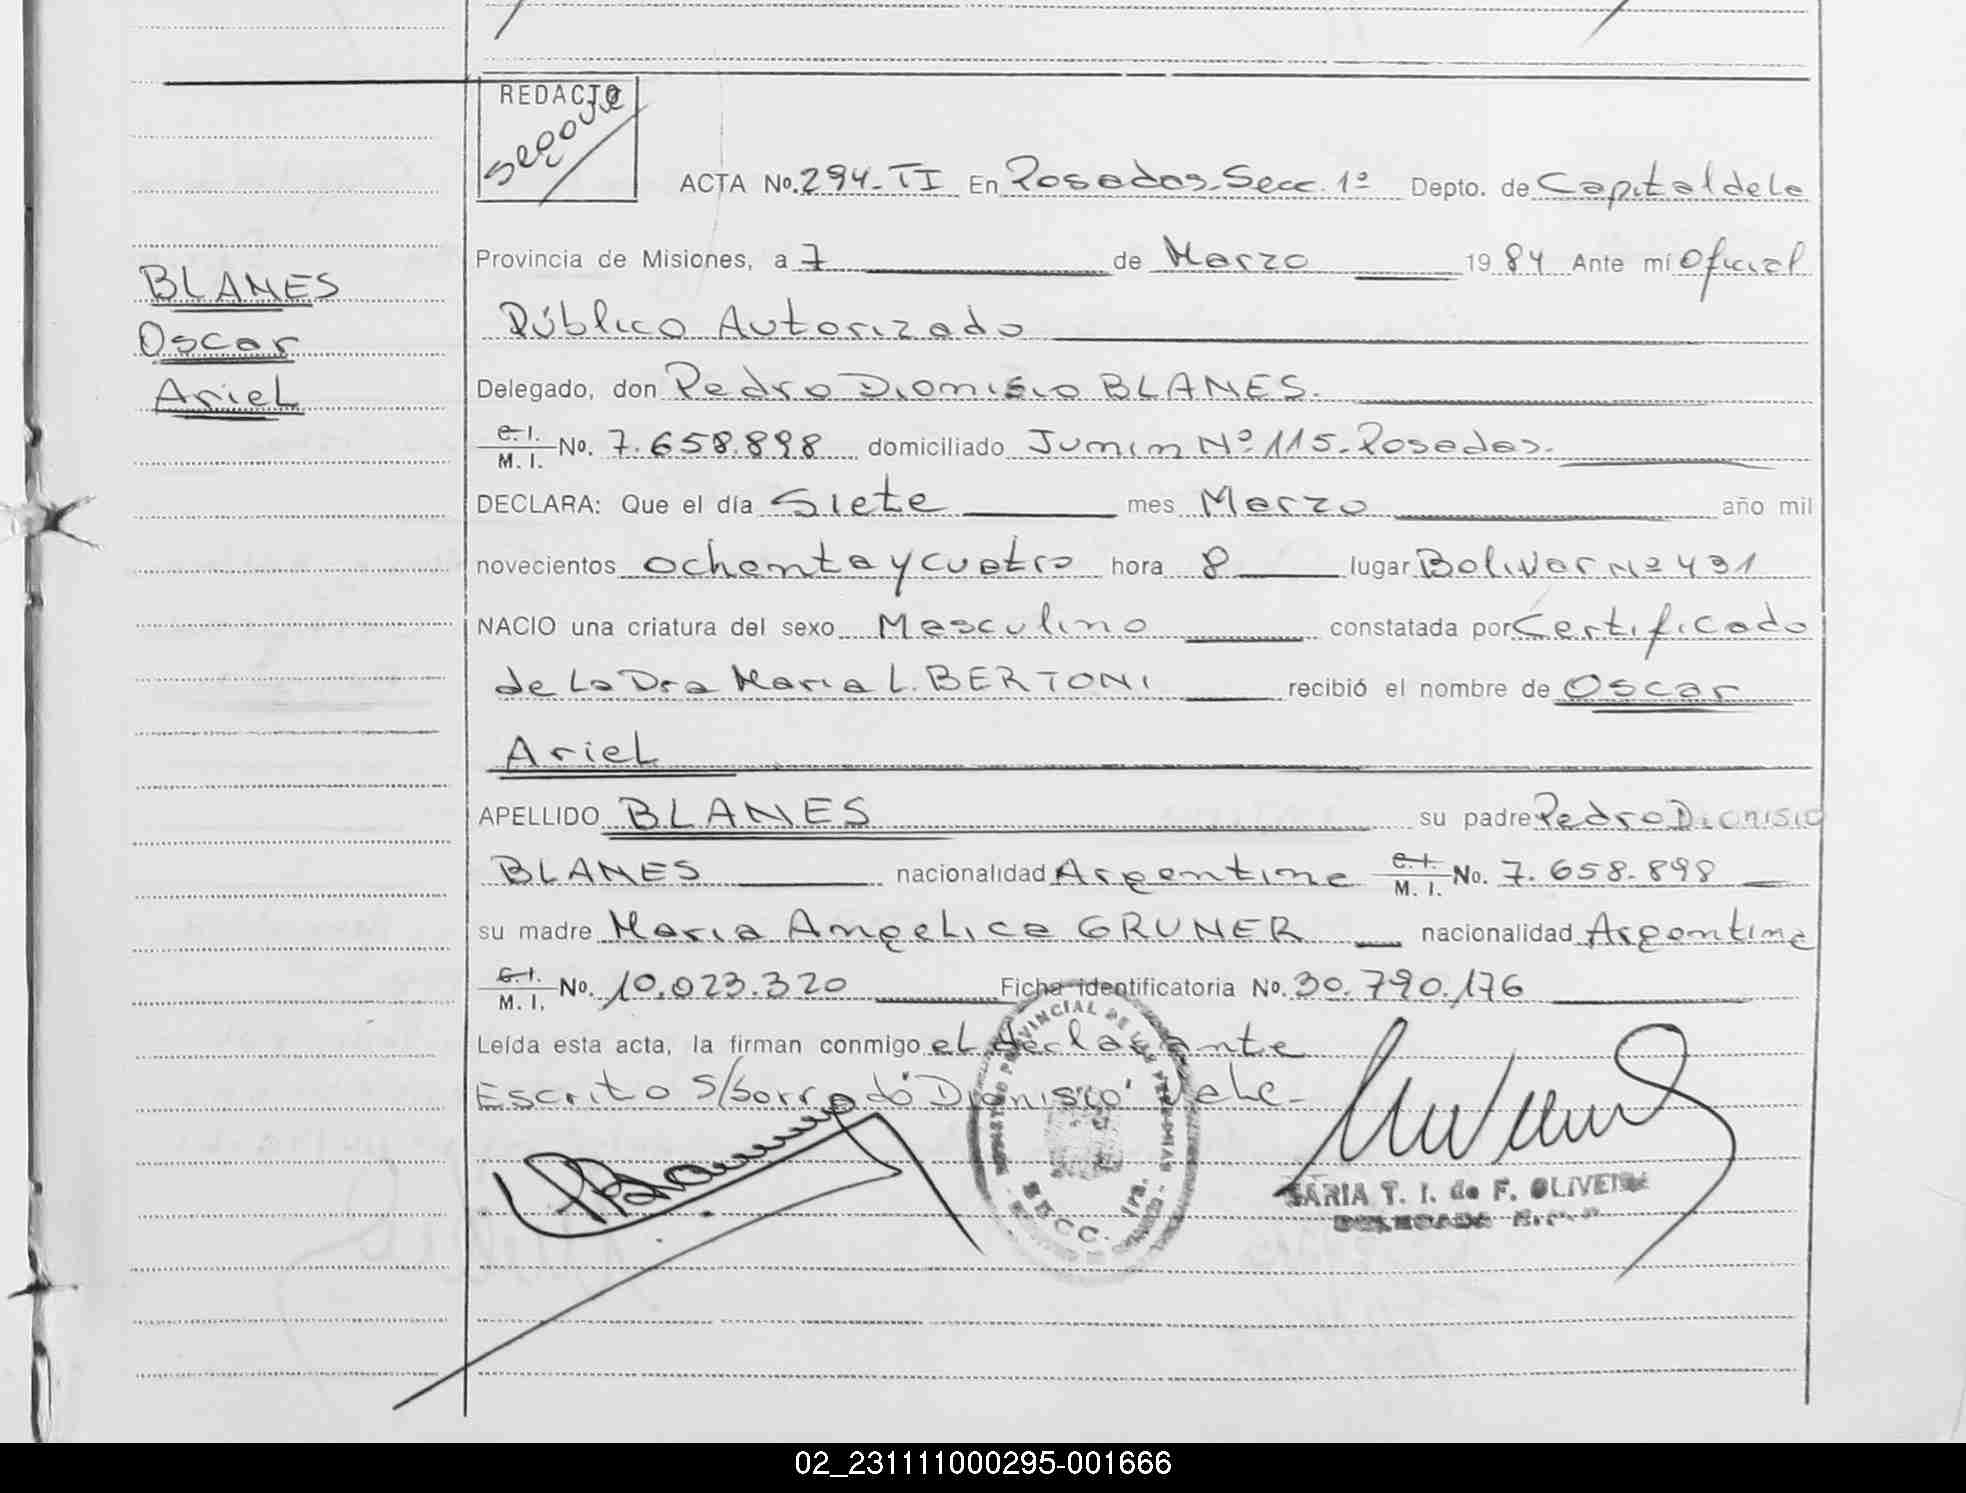 REDACTO
Segovia
ACTA No. 294-TI En Posadas-Secc. 1º Depto. de Capital de la
Provincia de Misiones, a 7 de Marzo 1984 Ante mí Oficial
Público Autorizado
BLANES
Oscar
Ariel
Delegado, don Pedro Dionisio BLANES.
C. I. M. I. No. 7.658.898 domiciliado Junin Nº 115-Posadas.
DECLARA: Que el día Siete mes Marzo año mil
novecientos ochenta y cuatro hora 8 lugar Bolivar Nº 431
NACIO una criatura del sexo Masculino constatada por Certificado
de la Dra Maria L. BERTONI recibió el nombre de Oscar
Ariel
APELLIDO BLANES su padre Pedro Dionisio
BLANES nacionalidad Argentina C. I. M. I. No. 7.658.898
su madre Maria Angelica GRUNER nacionalidad Argentina
C. I. M. I. No. 10.023.320 Ficha identificatoria No. 30.790.176
Leída esta acta, la firman conmigo el declarante
Escrito S/borrado "Dionisio" Vale-
MARIA T. I. de F. OLIVEIRA
DELEGADA
02_231111000295-001666